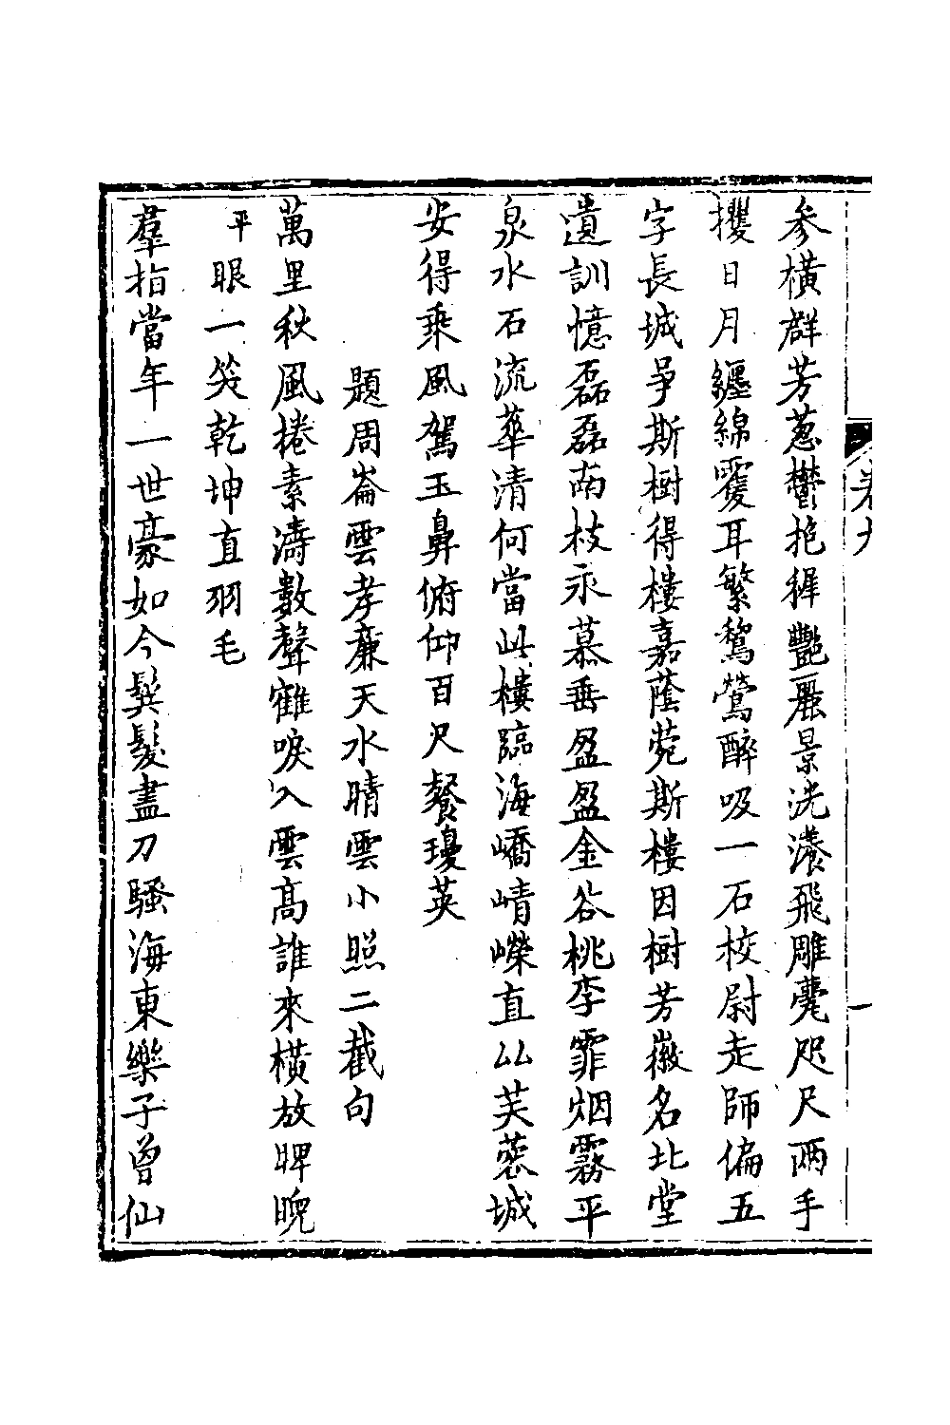 參橫群芳蔥鬱抱穉艷麗景洸瀁飛雕甍咫尺兩手
攫日月纏綿覆耳繁鶖鶯醉吸一石校尉走師偏五
字長城爭斯樹得樓嘉蔭菀斯樓因樹芳徽名北堂
遺訓憶磊磊南枝永慕垂盈盈金谷桃李霏烟霧平
泉水石流華清何當此樓臨海嶠崝嶸直以芙蓉城
安得乘風駕玉鼻俯仰百尺餐瓊英
題周崙雲孝廉天水晴雲小照二截句
萬里秋風捲素濤數聲寉唳入雲高誰來橫放睥睨
平眼一笑乾坤直羽毛
羣指當年一世豪如今鬂髮盡刀騷海東樂子曾仙
卷九
一